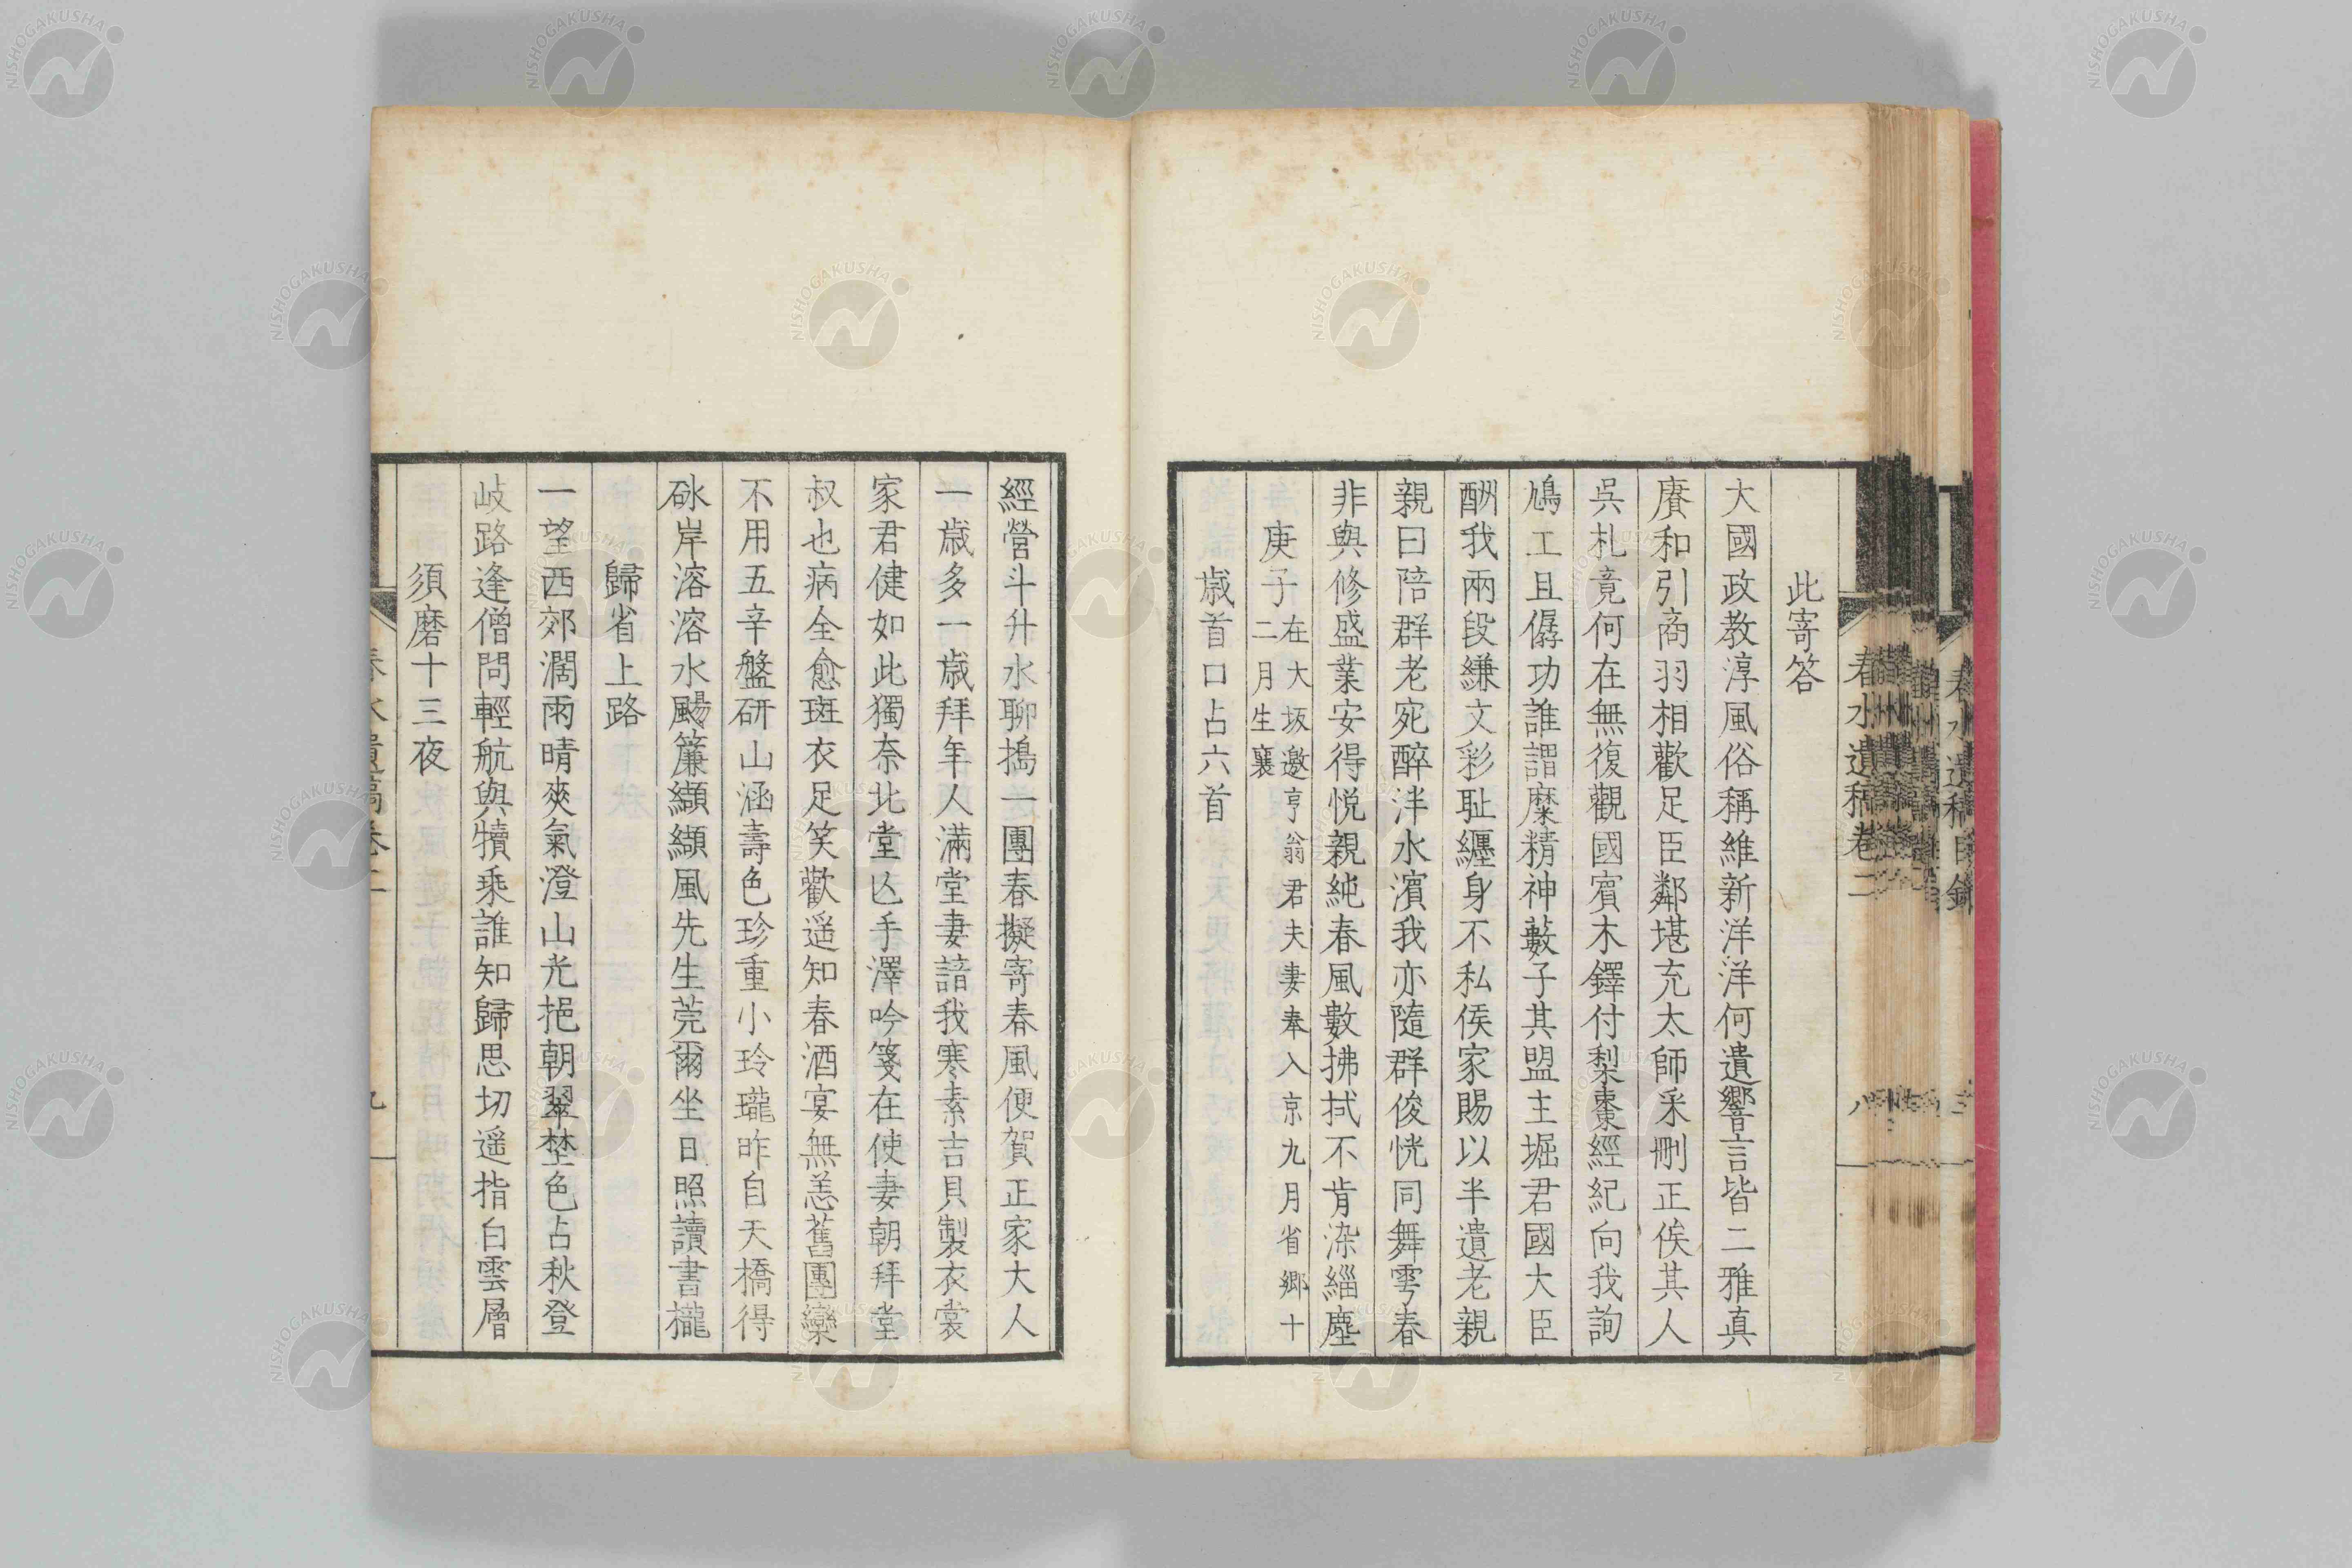 此寄答
大國政教淳風俗稱維新洋洋何遺響言皆二雅真
賡和引商羽相歡足臣鄰堪充太師采刪正俟其人
吳札竟何在無復觀國賓木鐸付梨棗經紀向我詢
鳩工且僝功誰謂糜精神藪子其盟主堀君國大臣
酬我兩段縑文彩耻纏身不私侯家賜以半遺老親
親曰陪群老宛醉泮水濱我亦隨群俊恍同舞雩春
非與修盛業安得悅親純春風數拂拭不肯染緇塵
庚子在大坂邀亨翁君夫妻奉入京九月省鄉十
二月生襄
歲首口占六首
春水遺稿卷二
八
經營斗升水聊搗一團春擬寄春風便賀正家大人
一歲多一歲拜年人滿堂妻諳我寒素吉貝製衣裳
家君健如此獨奈北堂亾手澤吟箋在使妻朝拜堂
叔也病全愈斑衣足笑歡遥知春酒宴無恙舊團欒
不用五辛盤研山涵壽色珍重小玲瓏昨自天橋得
砯岸溶溶水颺簾纈纈風先生莞爾坐日照讀書櫳
歸省上路
一望西郊濶雨晴爽氣澄山光挹朝翠埜色占秋登
岐路逢僧問輕航與犢乘誰知歸思切遥指白雲層
須磨十三夜
春水遺稿卷二
九
NISHOGAKUSHA